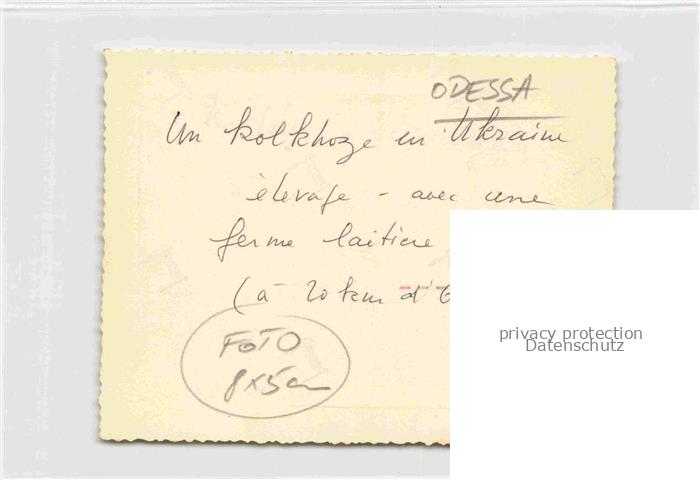 ODESSA
Un kolkhoze en Ukraine
élevage - avec une
ferme laitière
(à 20 km d'
FOTO
8x5cm
privacy protection
Datenschutz